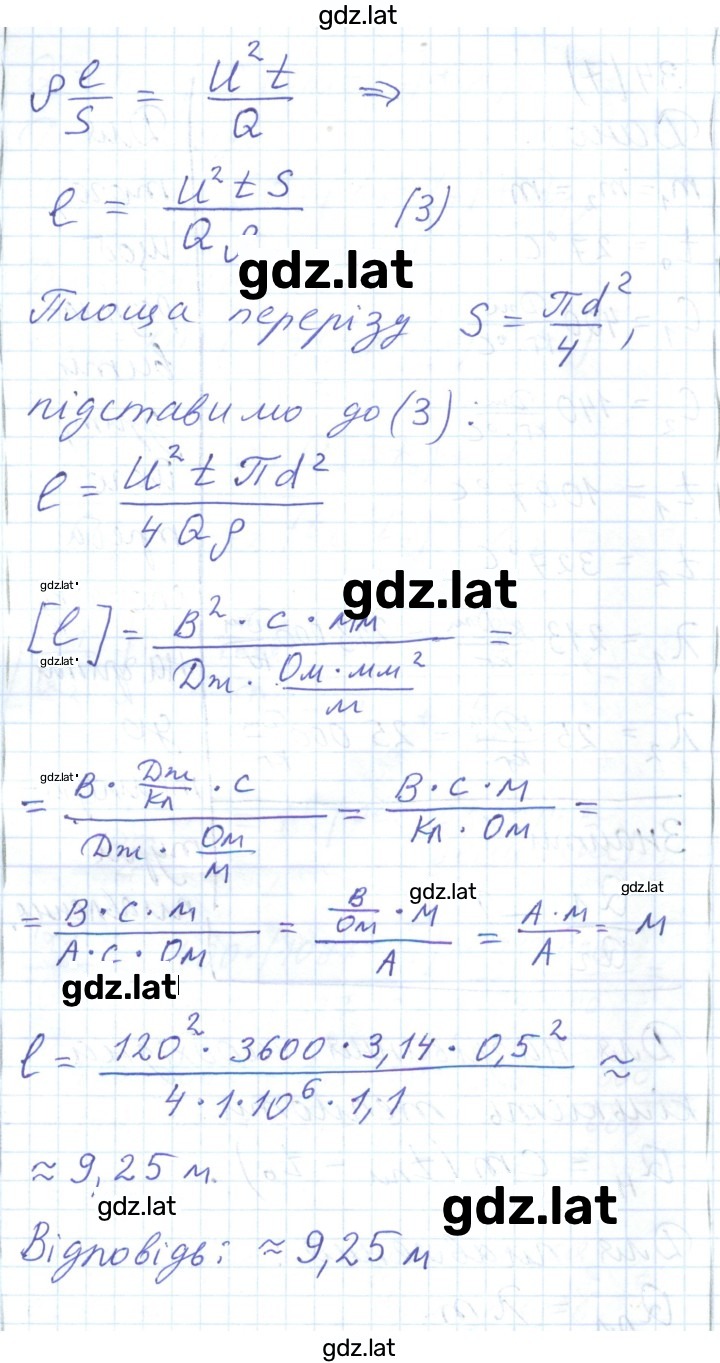 gdz.lat
ρ l/S = U²t/Q ⇒
l = U²tS/Qρ (3)
gdz.lat
Площа перерізу S = πd²/4,
підставимо до (3):
l = U²tπd²/4Qρ
gdz.lat
gdz.lat
[l] = В²·с·мм/(Дж·Ом·мм²/м) =
gdz.lat
gdz.lat
= В·Дж/Кл·с/(Дж·Ом/м) = В·с·м/(Кл·Ом) =
gdz.lat
gdz.lat
= В·с·м/(А·с·Ом) = (В/Ом·м)/А = А·м/А = м
gdz.lat
l = 120²·3600·3,14·0,5²/(4·1·10⁶·1,1) ≈
≈ 9,25 м.
gdz.lat
gdz.lat
Відповідь: ≈ 9,25 м
gdz.lat